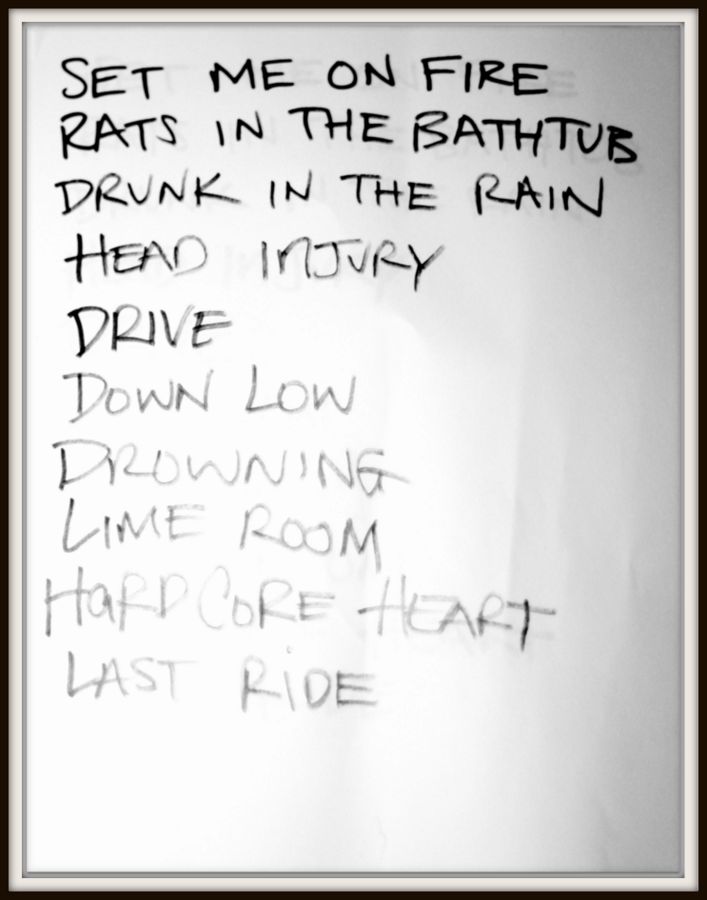 SET ME ON FIRE
RATS IN THE BATHTUB
DRUNK IN THE RAIN
HEAD INJURY
DRIVE
DOWN LOW
DROWNING
LIME ROOM
HARDCORE HEART
LAST RIDE